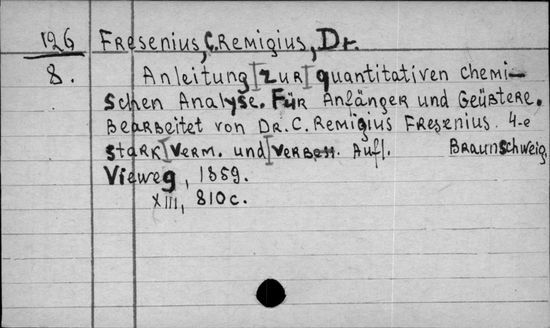 126 Fresenius, C. Remigius, Dr.
8. Anleitung zur quantitativen chemi-
schen Analyse. Für Anfänger und Geübtere.
Bearbeitet von Dr. C. Remigius Fresenius. 4-e
stark verm. und verbess. Aufl. Braunschweig,
Vieweg, 1859.
XIII, 810 c.